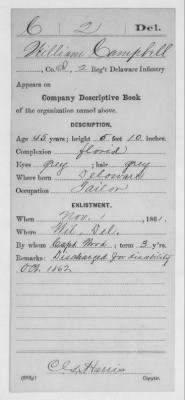 C 2 Del.
William Campbell
, Co. D, 2 Reg't Delaware Infantry.
Appears on
Company Descriptive Book
of the organization named above.
DESCRIPTION.
Age 45 years; height 5 feet 10 inches.
Complexion florid
Eyes grey; hair grey
Where born Delaware
Occupation Tailor
ENLISTMENT.
When Nov. 1, 1861.
Where Wil, Del.
By whom Capt. ; term 3 y'rs.
Remarks: Discharged for disability
Oct. 1862
Harris
Copyist.